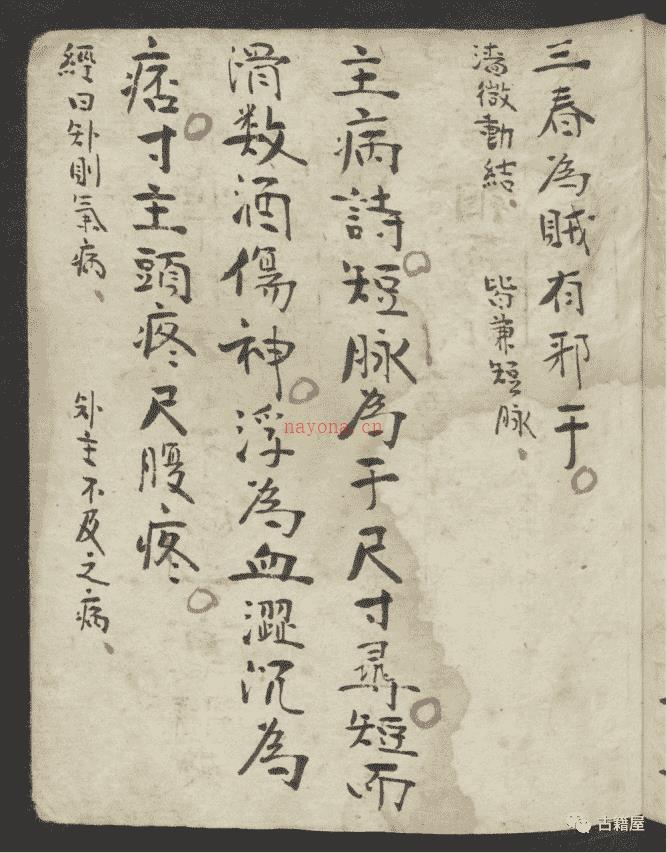 三春為賊有邪干。
濇微動結、 皆兼短脉、
主病詩。短脉為于尺寸尋。短而
滑数酒傷神。浮為血澀沉為
痞。寸主頭疼尺腹疼。
經曰則氣病、 主不及之病、
nayona.cn
古籍屋